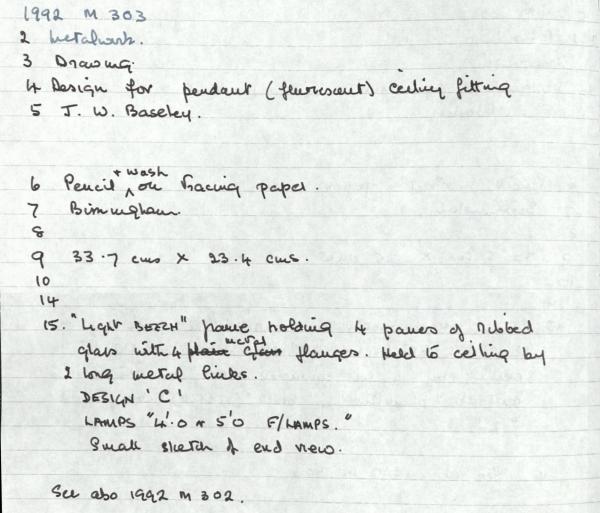 1992 M 303
2 Metalwork.
3 Drawing.
4 Design for pendant (flourescent) ceiling fitting
5 J. W. Baseley.
6 Pencil + wash on tracing paper.
7 Birmingham.
8
9 33.7 cms x 23.4 cms.
10
14
15. "Light BEECH" frame holding 4 panes of ribbed
glass with 4 plain metal flanges. Held to ceiling by
2 long metal links.
DESIGN 'C'
LAMPS "4'.0 or 5'0 F/LAMPS."
Small sketch of end view.
See also 1992 M 302.